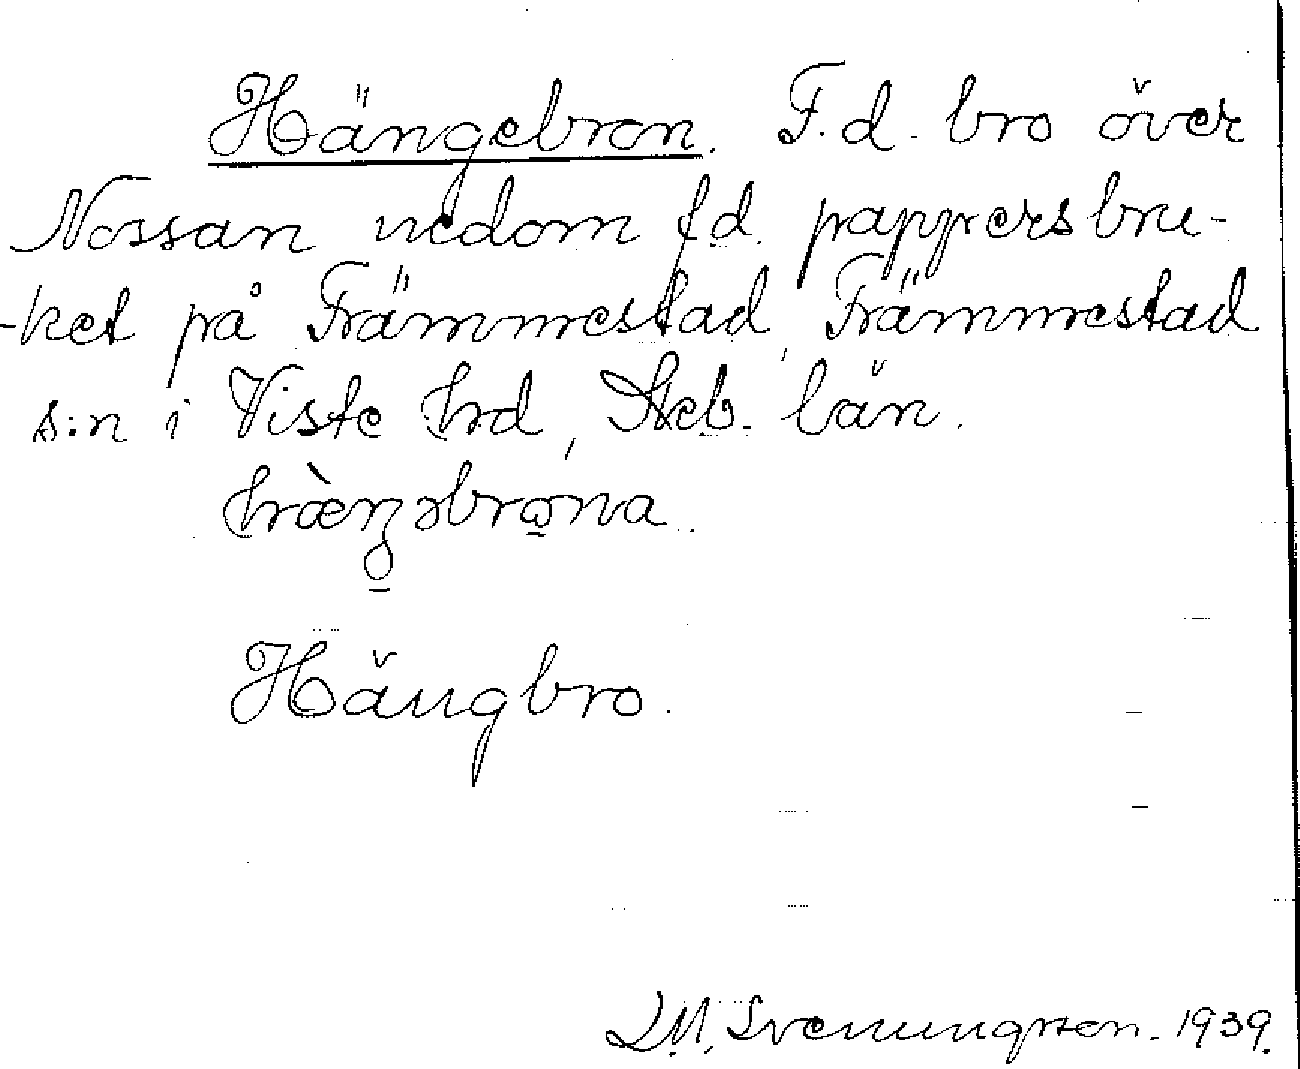 Hängebron. F.d. bro över
Nossan nedom f.d. pappersbru-
-ket på Främmestad, Främmestad
s:n i Viste hrd, Skb. län.
Hängbro.
1939.